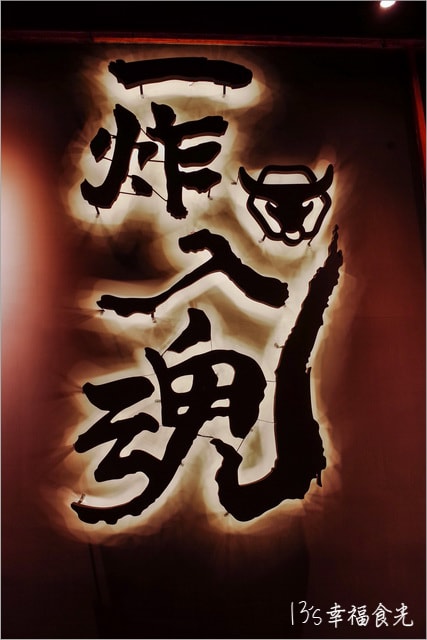 一炸入魂
13's幸福食光